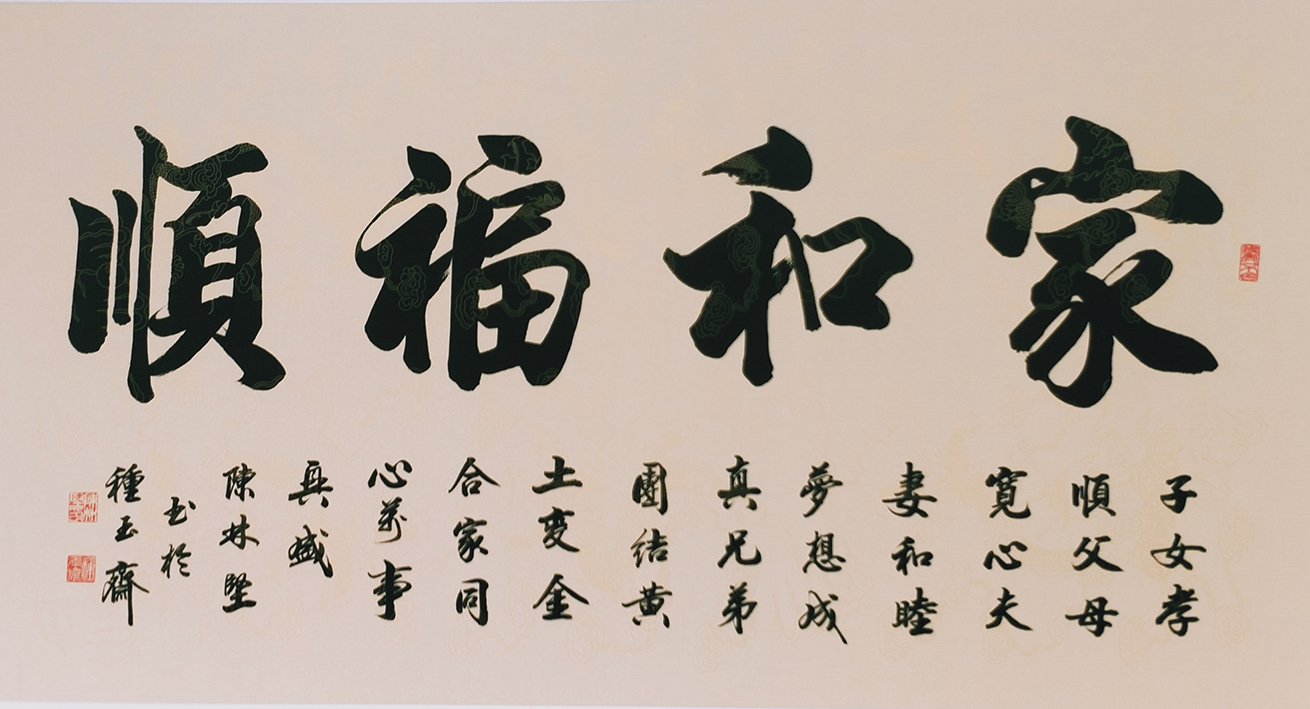 家和福順
子女孝
順父母
寬心夫
妻和睦
夢想成
真兄弟
團結黄
土变金
合家同
心萬事
興盛
陳林堅
书於
種玉齋